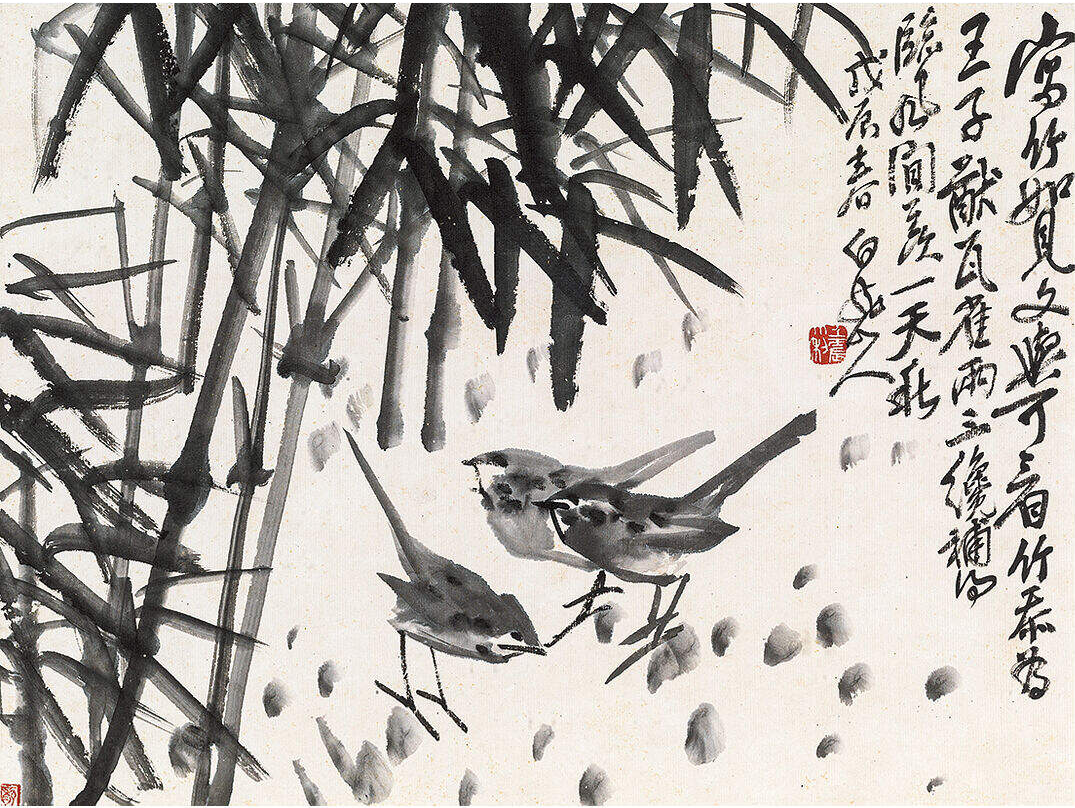 寫竹如見文與可看竹忝為
王子猷瓦雀兩三纔補得
臨風閒羨一天秋
戊辰春白龍山人